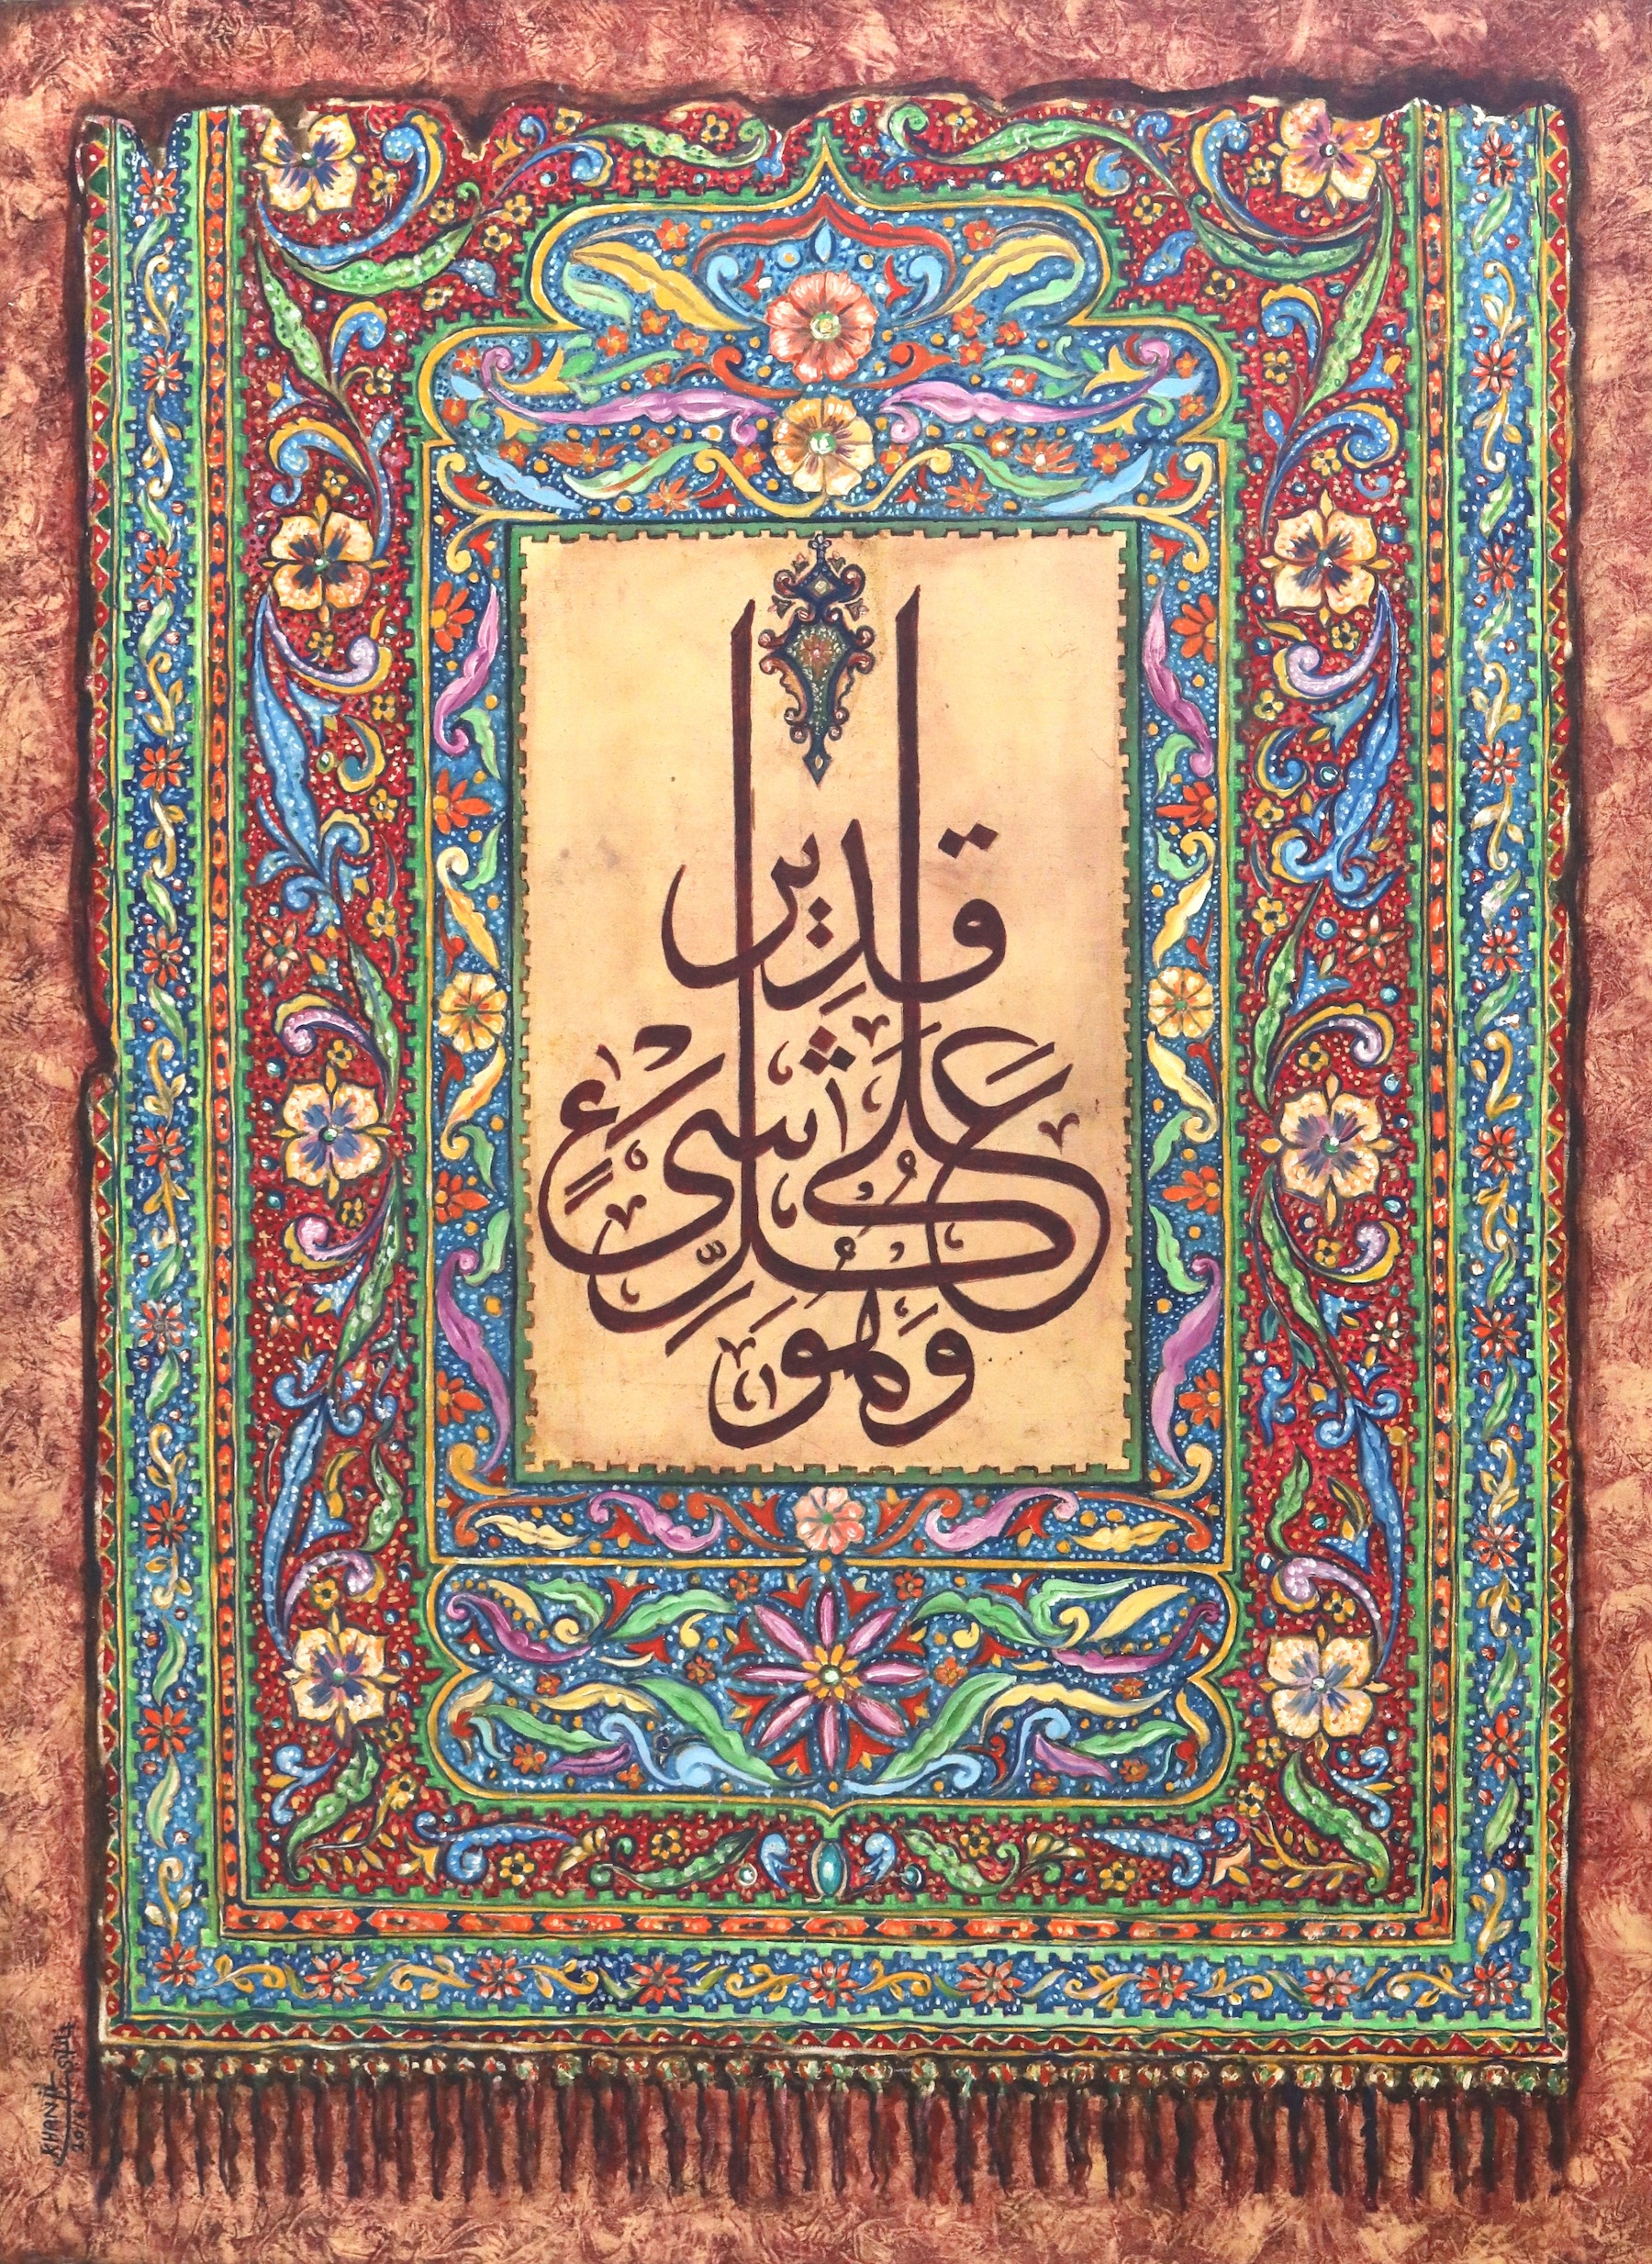 وَهُوَ
عَلَىٰ كُلِّ شَيْءٍ
قَدِير
KHAN